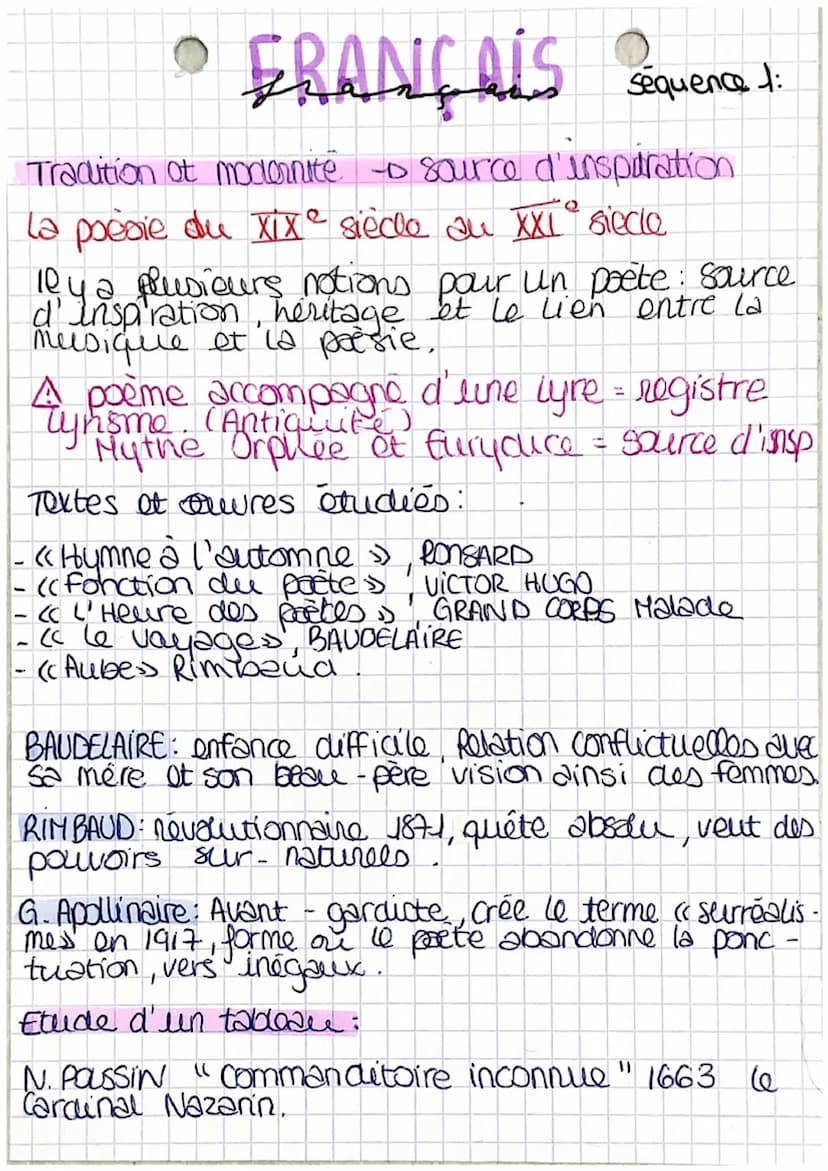 FRANÇAIS
français
séquence 1:
Tradition et modernité → source d'inspiration
La poésie du XIXe siècle au XXIe siècle
Il y a plusieurs notions pour un poète : source
d'inspiration, héritage et le lien entre la
musique et la poèsie.
⚠ poème accompagné d'une lyre = registre
lyrisme. (Antiquité)
Mythe Orphée et Eurydice = source d'insp
Textes et œuvres étudiés :
- « Hymne à l'automne », RONSARD
- « Fonction du poète », VICTOR HUGO
- « L'Heure des poètes », GRAND CORPS Malade
- « Le voyage », BAUDELAIRE
- « Aube » Rimbaud.
BAUDELAIRE : enfance difficile, Relation conflictuelles avec
sa mère et son beau-père vision ainsi des femmes.
RIMBAUD : révolutionnaire 1871, quête absolu, veut des
pouvoirs sur-naturels.
G. Apollinaire : Avant-gardiste, crée le terme « surréalis-
me » en 1917, forme où le poète abandonne la ponc-
tuation, vers inégaux.
Etude d'un tableau :
N. POUSSIN "Commanditoire inconnue" 1663 le
Cardinal Nazarin.